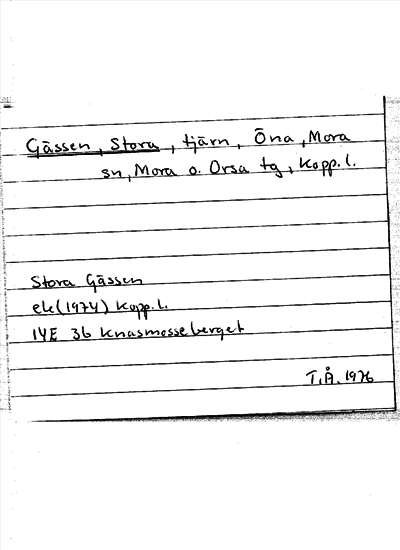 Gässen, Stora, tjärn, Öna, Mora
sn, Mora o. Orsa tg, Kopp.l.
Stora Gässen
ek (1974) Kopp.l.
14E 3b Knasmosseberget
T.Å. 1976